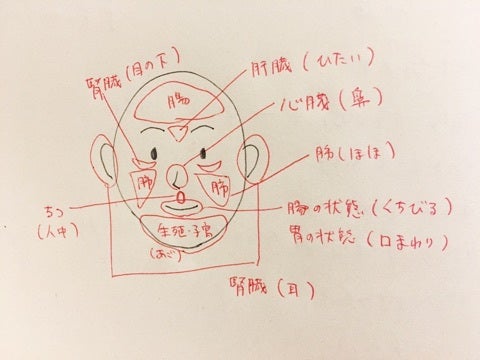 肝臓(ひたい)
腎臓(目の下)
腸
心臓(鼻)
肺(ほほ)
肺
肺
ちつ
(人中)
腸の状態(くちびる)
生殖・子宮
胃の状態(口まわり)
(あご)
腎臓(耳)